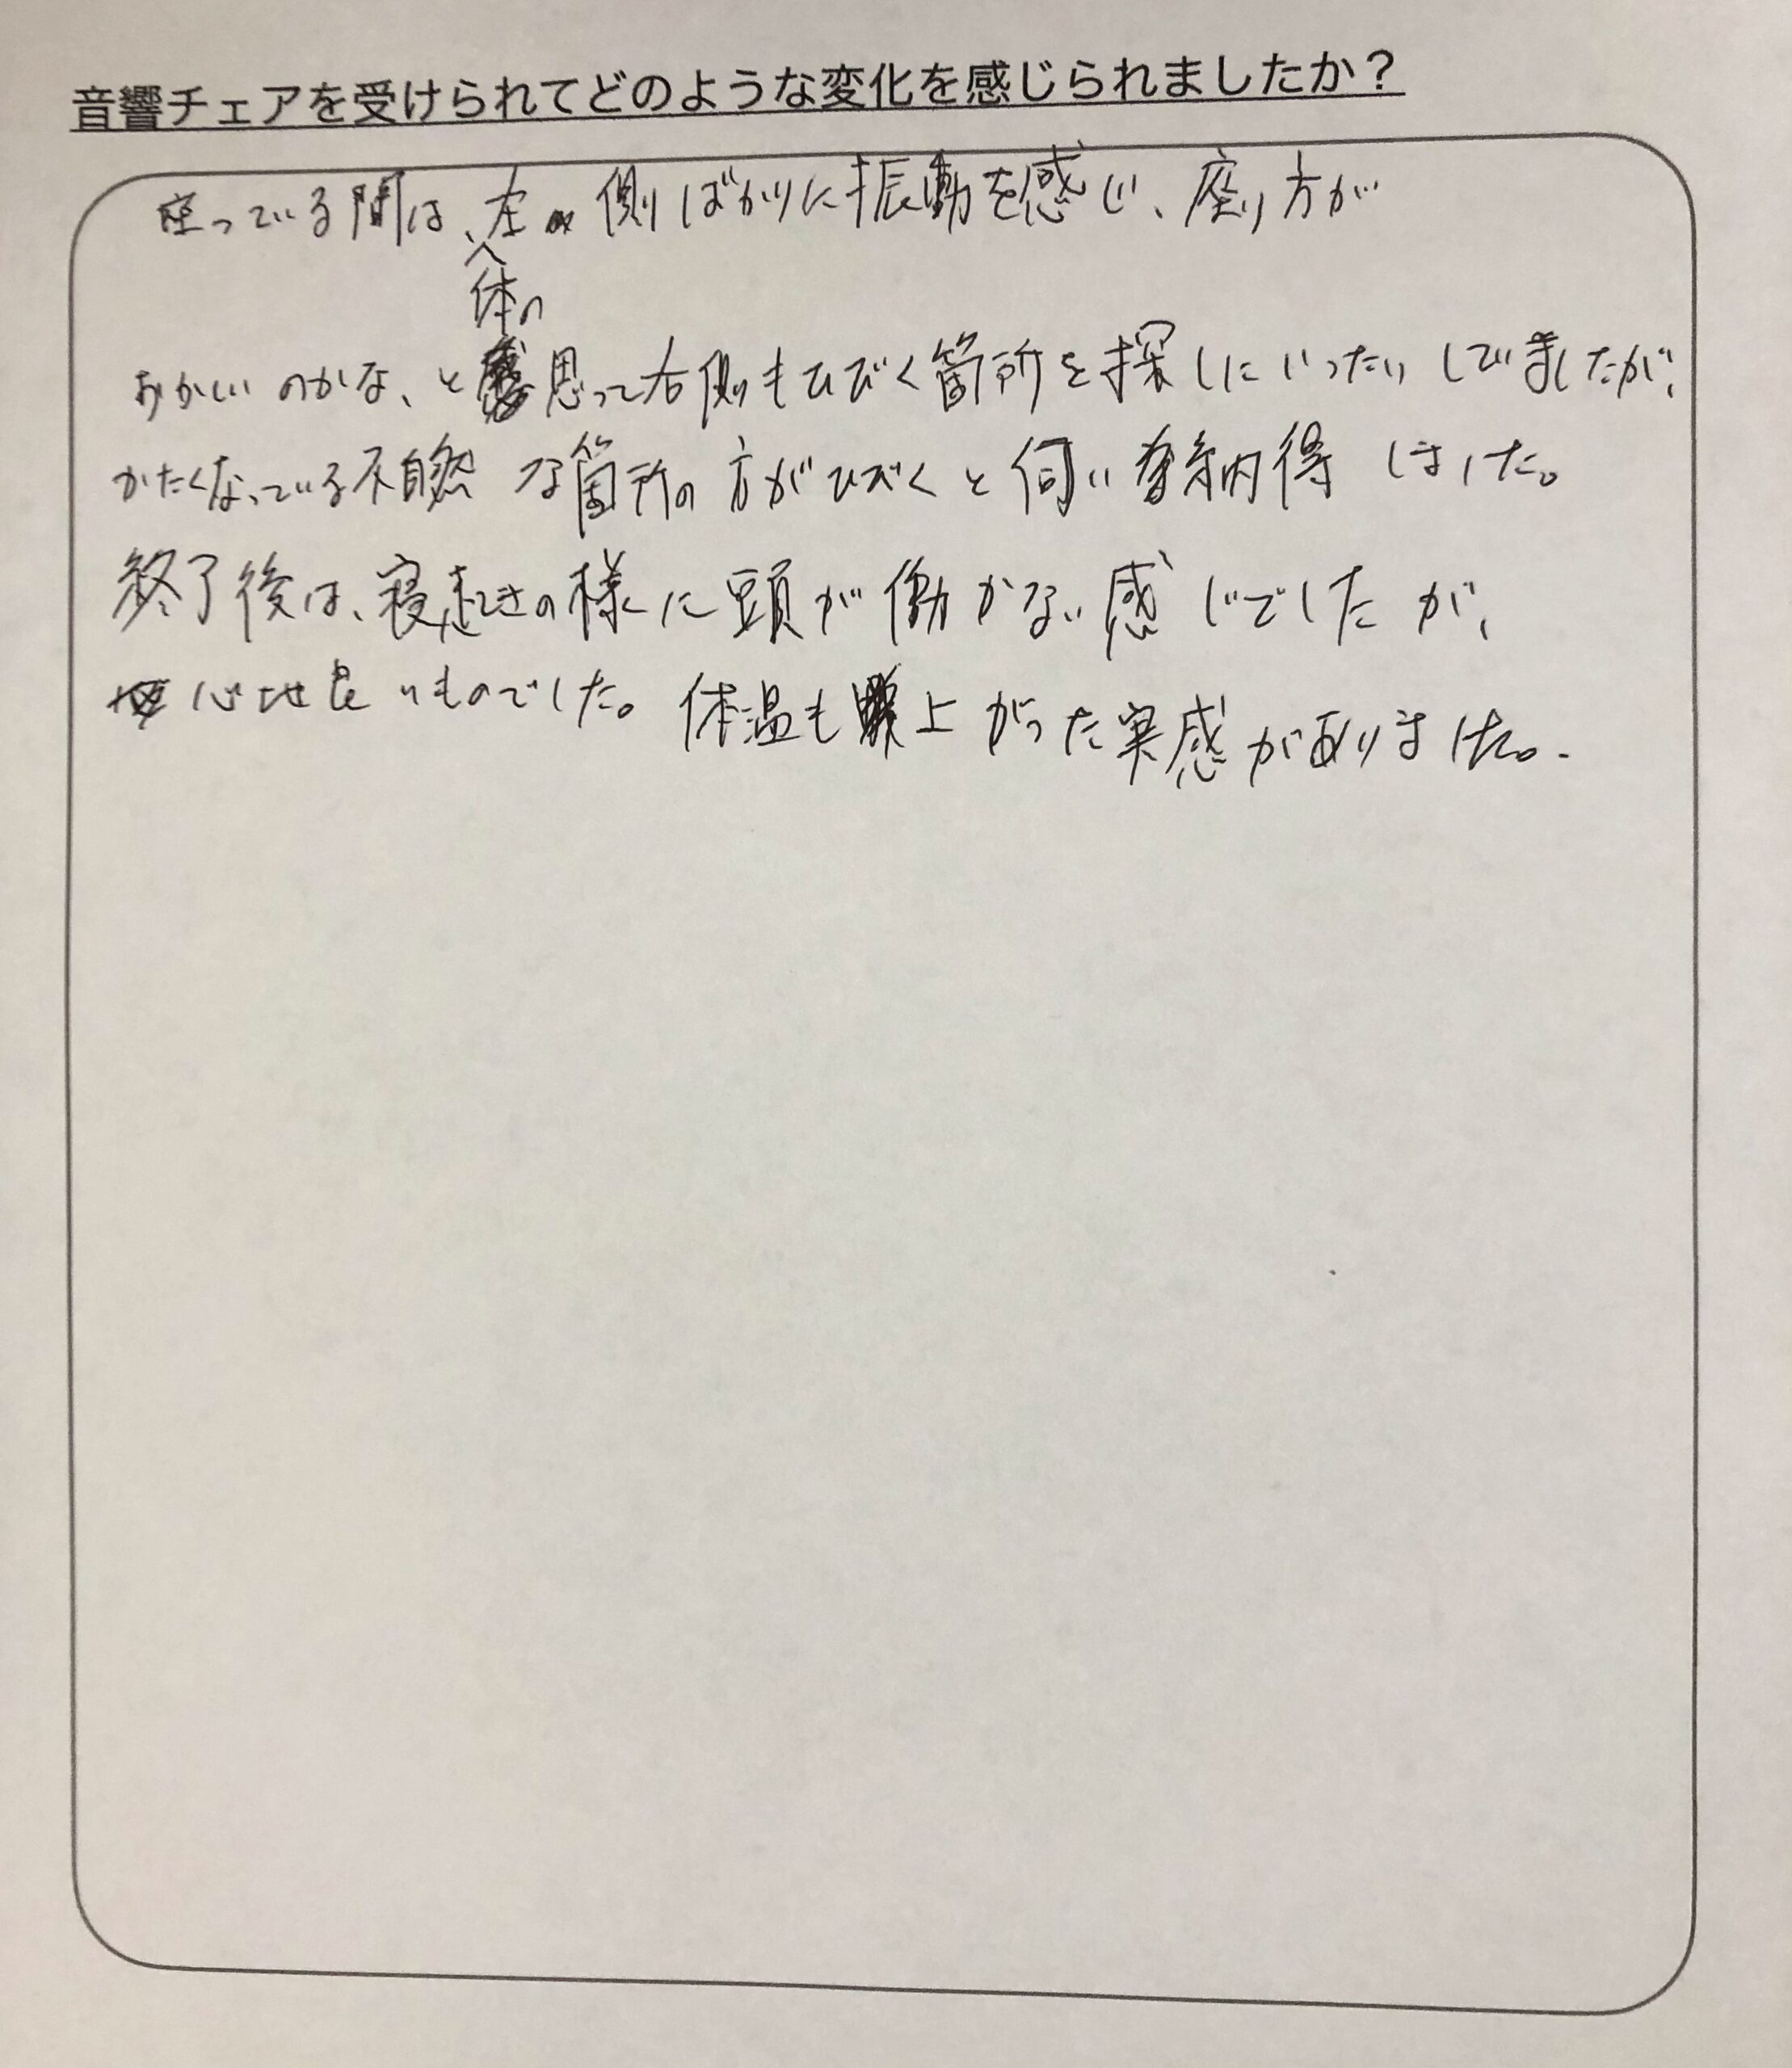 音響チェアを受けられてどのような変化を感じられましたか？
座っている間は、体の左側ばかりに振動を感じ、座り方が
おかしいのかな、と思って右側もひびく箇所を探しにいったりしていましたが、
かたくなっている不自然な箇所の方がひびくと伺い納得しました。
終了後は、寝起きの様に頭が働かない感じでしたが、
心地良いものでした。体温も上がった実感がありました。